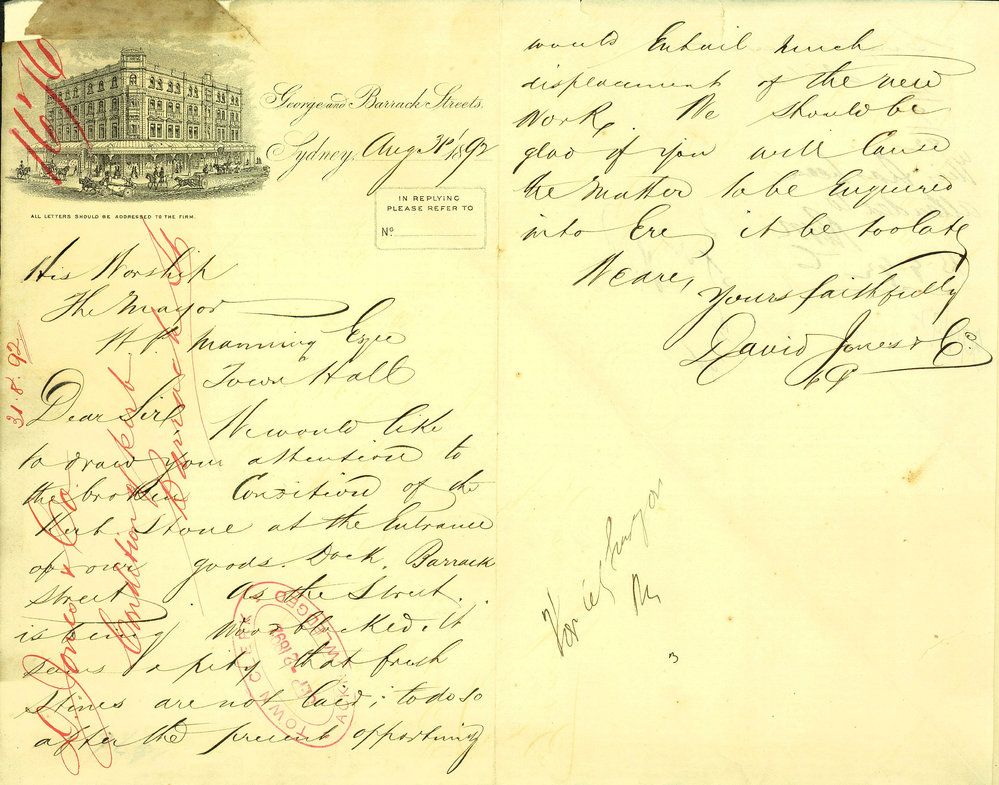 George and Barrack Streets.
Sydney, Aug 31st 1892
ALL LETTERS SHOULD BE ADDRESSED TO THE FIRM.
IN REPLYING
PLEASE REFER TO
No
His Worship
The Mayor
W P Manning Esqre
Town Hall
Dear Sir, We would like
to draw your attention to
the broken Condition of the
Kerb Stone at the Entrance
of our goods. Dock, Barrack
Street. As the Street.
is being Woodblocked. It
seems a pity that fresh
Stones are not laid; to do so
after the present opportunity
would Entail much
displacement of the new
Work, We should be
glad if you will Cause
the Matter to be Enquired
into Ere, it be too late
We are,
Yours faithfully
David Jones & Co
31.8.92
D. Jones & Co
Condition of kerb
Barrack St
TOWN CLERK
SEP 2 1892
ACKNOWLEDGED
3